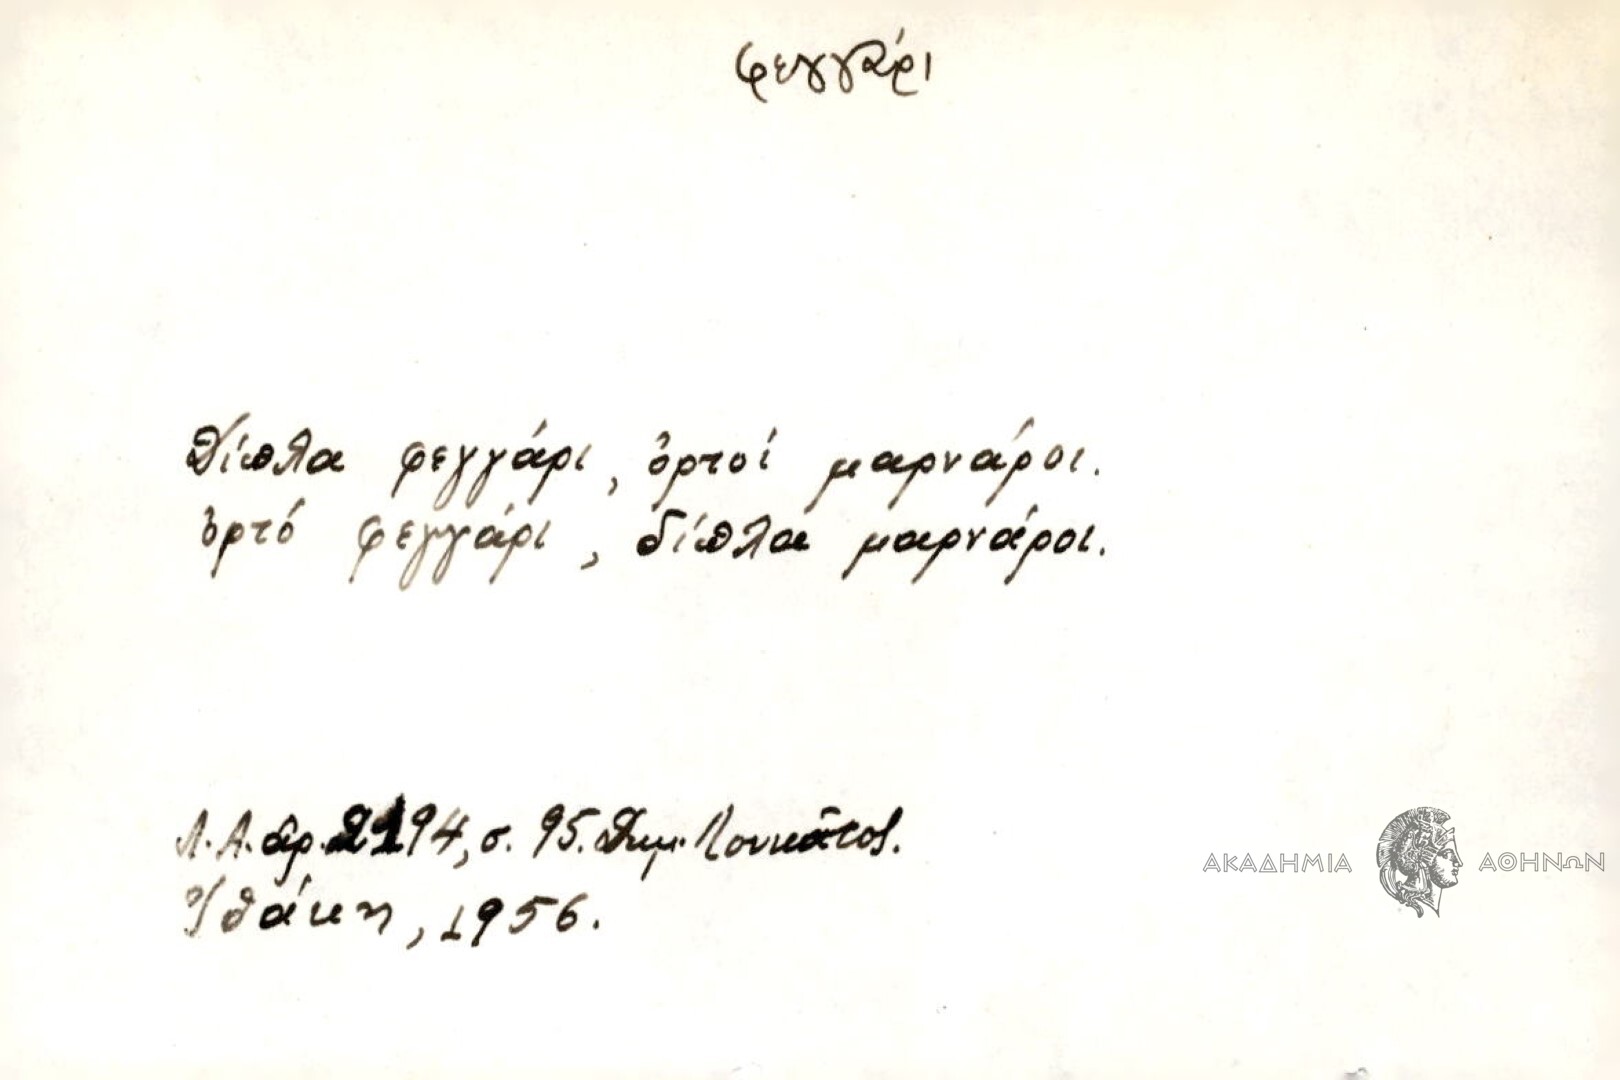 φεγγάρι
Δίπλα φεγγάρι, ὀρτοί μαρνάροι.
ὀρτό φεγγάρι, δίπλα μαρνάροι.
Λ.Α. ἀρ. 2194, σ. 95. Δημ. Λουκᾶτος.
Ἰθάκη, 1956.
ΑΚΑΔΗΜΙΑ ΑΘΗΝΩΝ